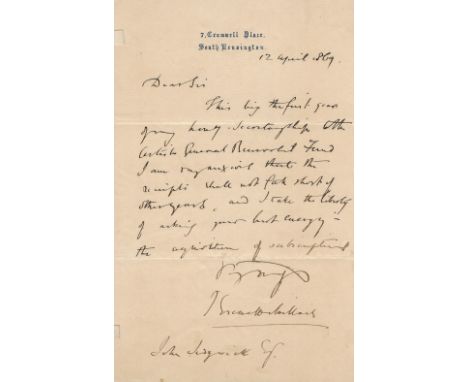 7, Cromwell Place,
South Kensington.
12 April 1869.
Dear Sir
This being the first year
of my hony Secretaryship to the
Artists General Benevolent Fund
I am very anxious that the
receipts shall not fall short of
other years, and I take the liberty
of asking your best energy in
the acquisition of subscriptions
John Sedgwick Esq